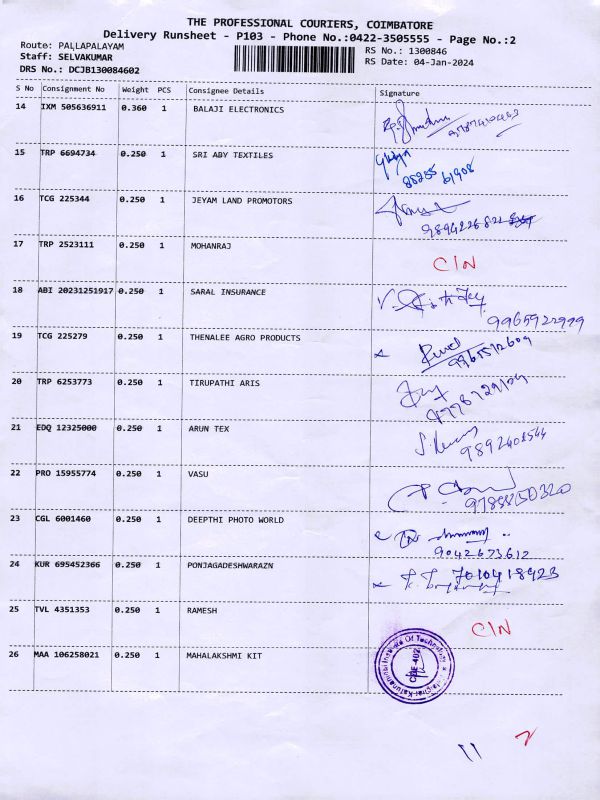 THE PROFESSIONAL COURIERS, COIMBATORE
Delivery Runsheet - P103 - Phone No.:0422-3505555 - Page No.:2
Route: PALLAPALAYAM
RS No.: 1300846
Staff: SELVAKUMAR
RS Date: 04-Jan-2024
DRS No.: DCJB130084602
S No Consignment No Weight PCS Consignee Details Signature
14 IXM 505636911 0.360 1 BALAJI ELECTRONICS
15 TRP 6694734 0.250 1 SRI ABY TEXTILES
88255 61908
16 TCG 225344 0.250 1 JEYAM LAND PROMOTORS
17 TRP 2523111 0.250 1 MOHANRAJ
C/N
18 ABI 20231251917 0.250 1 SARAL INSURANCE
9965922999
19 TCG 225279 0.250 1 THENALEE AGRO PRODUCTS
9965512609
20 TRP 6253773 0.250 1 TIRUPATHI ARIS
21 EDQ 12325000 0.250 1 ARUN TEX
22 PRO 15955774 0.250 1 VASU
23 CGL 6001460 0.250 1 DEEPTHI PHOTO WORLD
9042673612
24 KUR 695452366 0.250 1 PONJAGADESHWARAZN
7010418923
25 TVL 4351353 0.250 1 RAMESH
C/N
26 MAA 106258021 0.250 1 MAHALAKSHMI KIT
11 2